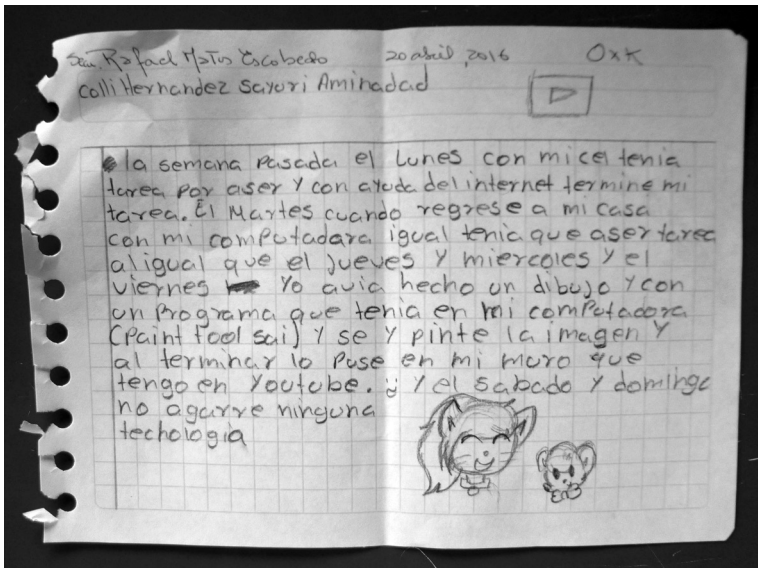 Sec. Rafael Matos Escobedo 20 abril, 2016 OxK
Colli Hernandez Sayuri Aminadad
la semana pasada el Lunes con mi cel tenia
tarea por aser y con ayuda del internet termine mi
tarea. El Martes cuando regrese a mi casa
con mi computadara igual tenia que aser tarea
al igual que el jueves y miercoles y el
viernes Yo avia hecho un dibujo y con
un programa que tenia en mi computadora
(Paint tool sai) y se y pinte la imagen y
al terminar lo puse en mi muro que
tengo en Youtube. :) y el sabado y domingo
no agarre ninguna
techologia